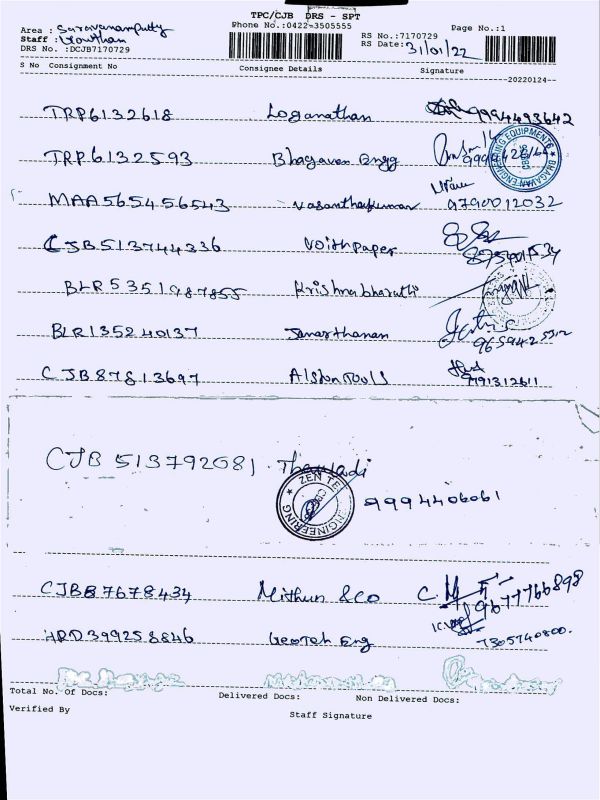 TPC/CJB DRS - SPT
Phone No.:0422-3505555
Area : Saravanampatty
Staff : Gowthan
DRS No. :DCJB7170729
RS No.:7170729
RS Date: 31/01/22
Page No.:1
S No Consignment No Consignee Details Signature
20220124
TRP6132618 Loganathan 9994493642
TRP6132593 Bhagavan Engg
BHAGAVAN ENGINEERING EQUIPMENTS
MAA565456543 Vasanthakumar 9790012032
CJB513744336 Voithpaper
BLR5351987855 Krishnabharathi
BLR135240137 Janarthanan
CJB87813697 Alston Tools 9791312611
CJB 513792081
ZEN ENGINEERING
9994406061
CJB87678434 Mithun & Co 9677766898
HRD399258846 Geoteh Eng 7305740800.
Total No. Of Docs: Delivered Docs: Non Delivered Docs:
Verified By Staff Signature